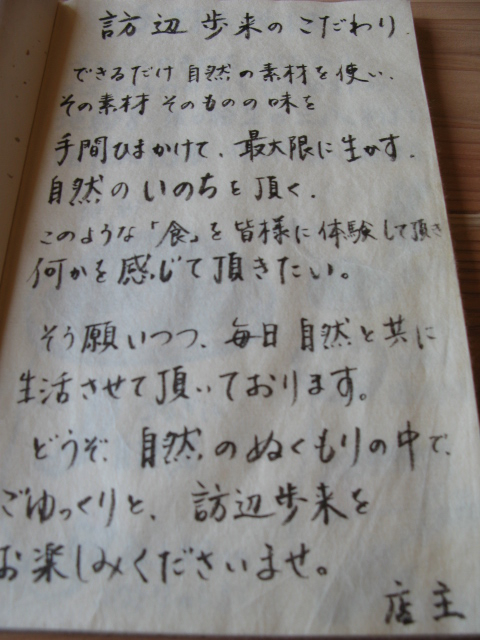 訪辺歩来のこだわり
できるだけ自然の素材を使い、
その素材そのものの味を
手間ひまかけて、最大限に生かす。
自然のいのちを頂く。
このような「食」を皆様に体験して頂き
何かを感じて頂きたい。
そう願いつつ、毎日自然と共に
生活させて頂いております。
どうぞ、自然のぬくもりの中で、
ごゆっくりと、訪辺歩来を
お楽しみくださいませ。
店主